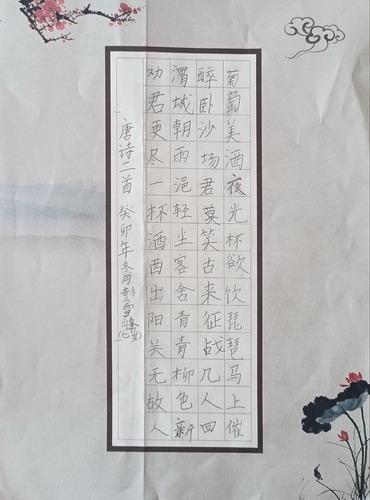 葡萄美酒夜光杯欲饮琵琶马上催
醉卧沙场君莫笑古来征战几人回
渭城朝雨浥轻尘客舍青青柳色新
劝君更尽一杯酒西出阳关无故人
唐诗二首 癸卯年冬月彭雪峰